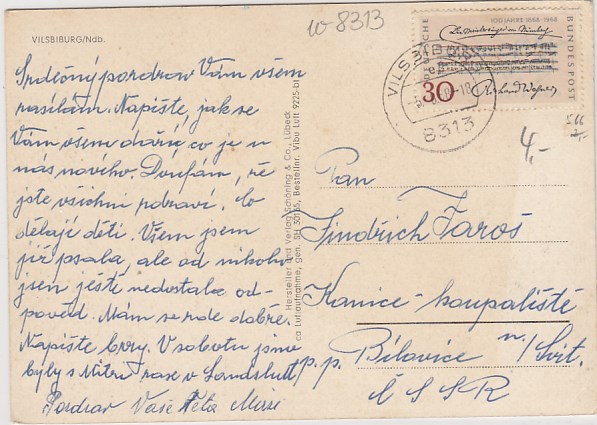 VILSBIBURG/Ndb.
w 8313
100 JAHRE 1868-1968
Die Meistersinger von Nürnberg
DEUTSCHE BUNDESPOST
30
Richard Wagner
VILSBIBURG
8313
4,-
Srdečný pozdrav Vám všem
zasílám. Napište, jak se
Vám všem daří, co je u
nás nového. Doufám, že
jste všichni zdraví. Co
dělají děti. Všem jsem
již psala, ale od nikoho
jsem ještě nedostala od-
pověd. Mám se zde dobře.
Napište brzy. V sobotu jsme
byly s Mitzi zase v Landshutt
Pozdrav Vaše Teta Mizzi
Hersteller und Verlag Schöning & Co., Lübeck
Luftaufnahme, gen. SH 30165, Bestellnr. Vibu Luft 9225-bt
Pan
Jindřich Jaroš
Kanice - koupaliště
p.p. Bílovice n/Svit.
ČSSR